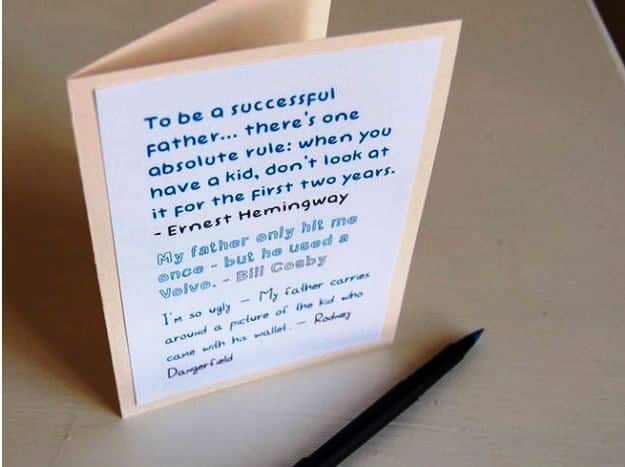 To be a successful
father... there's one
absolute rule: when you
have a kid, don't look at
it for the first two years.
- Ernest Hemingway
My father only hit me
once - but he used a
Volvo. - Bill Cosby
I'm so ugly – My father carries
around a picture of the kid who
came with his wallet. – Rodney
Dangerfield